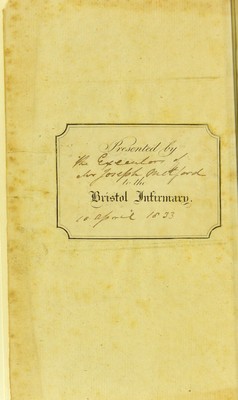 Presented by
the Executors of
Mr Joseph Metford
to the
Bristol Infirmary.
10 April 1833